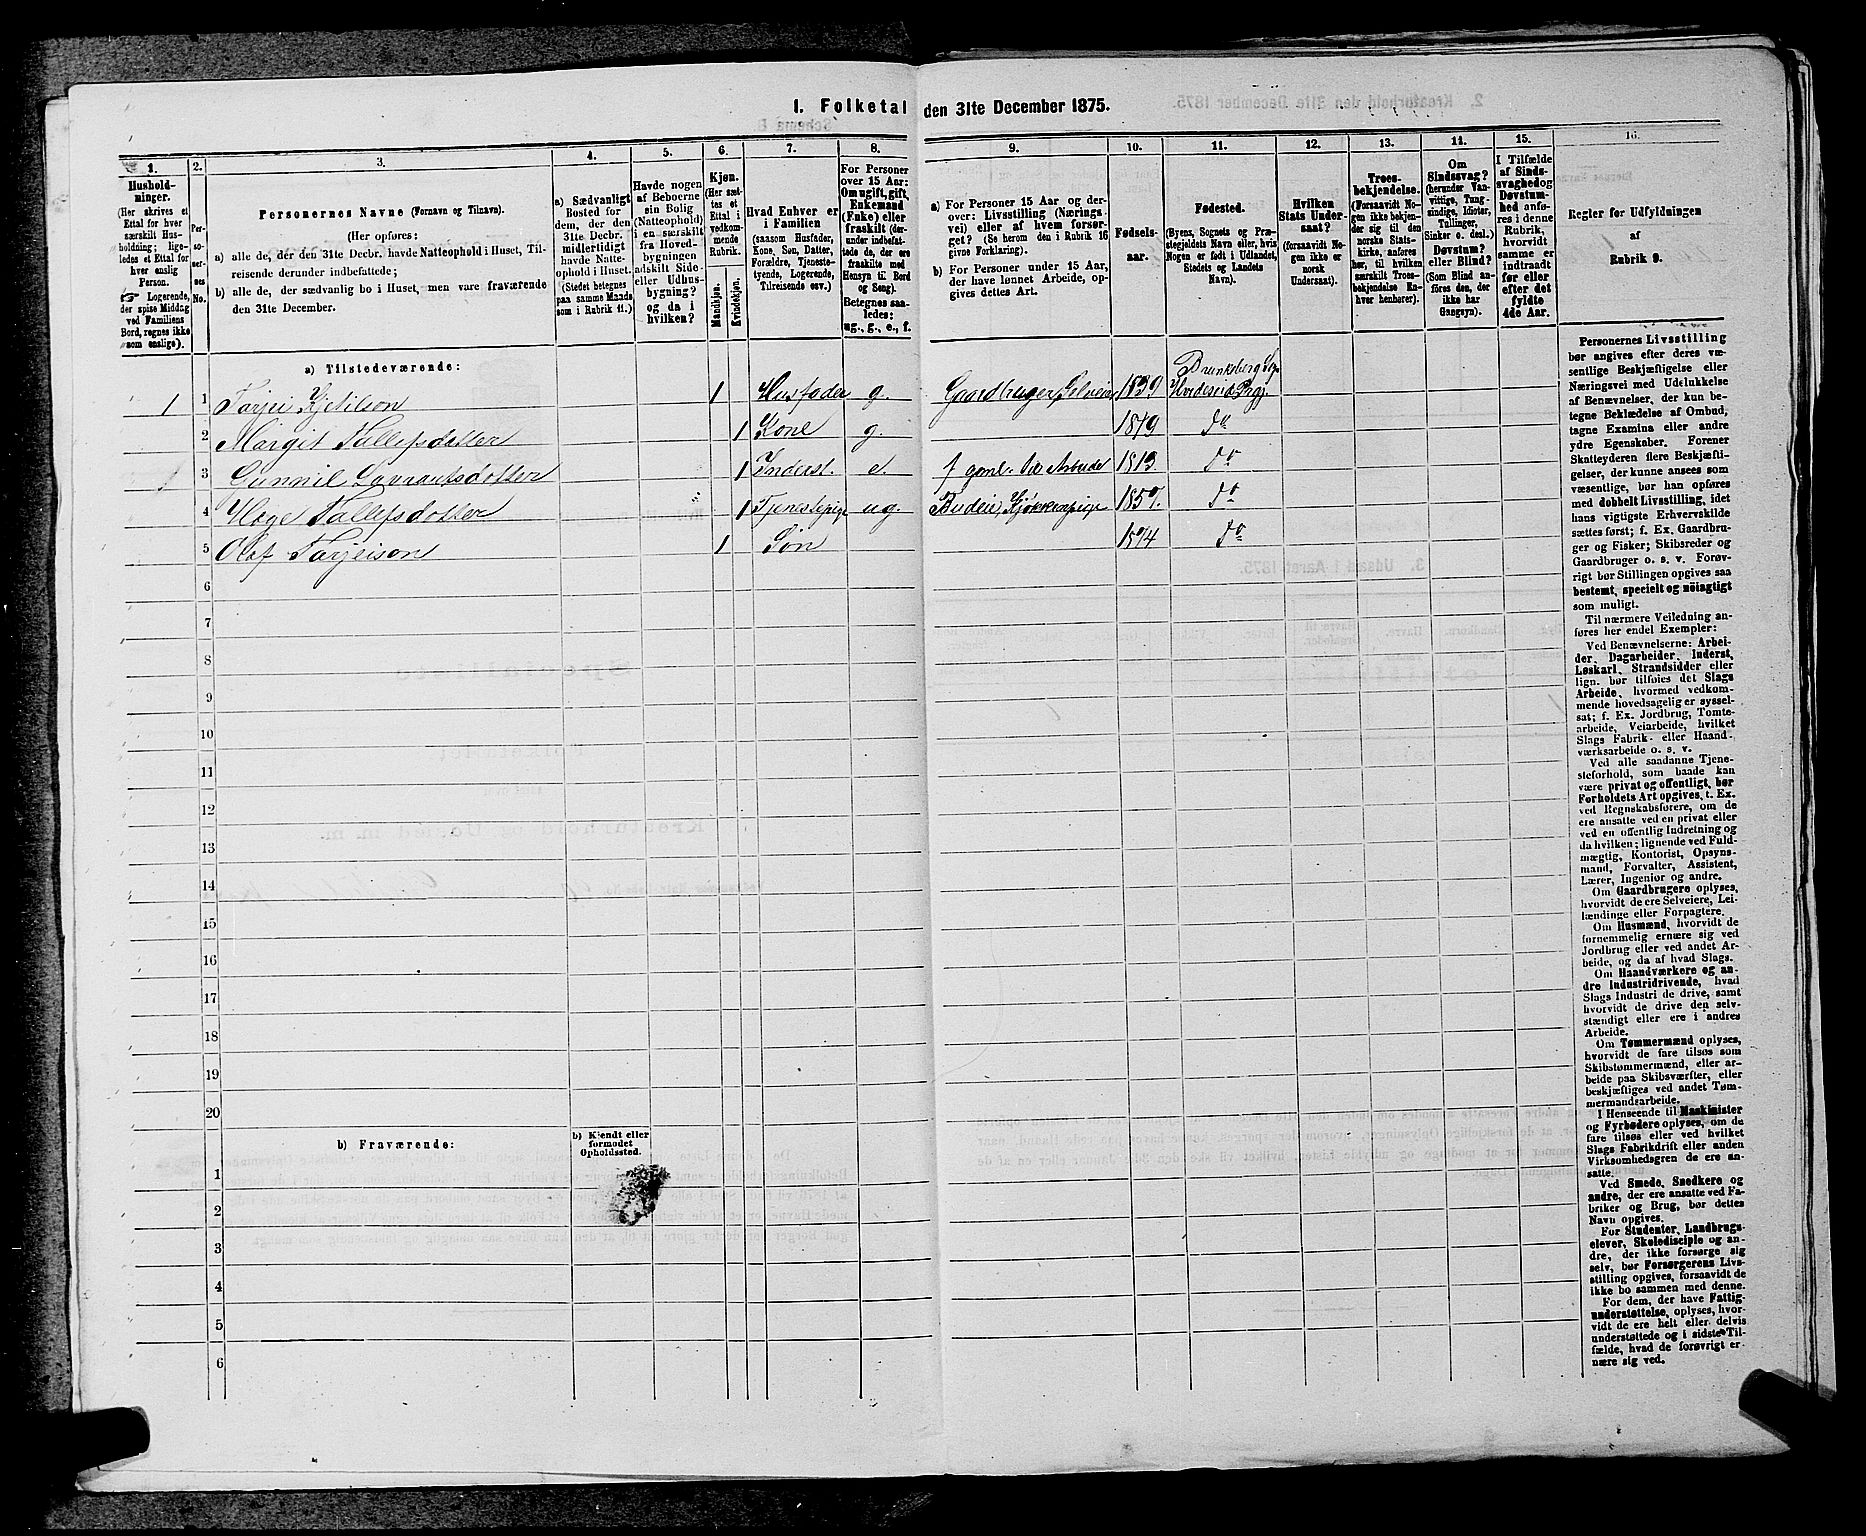 1. Folketal den 31te December 1875.
1.
Hushold-
ninger.
(Her skrives et
Ettal for hver
særskilt Hus-
holdning; lige-
ledes et Ettal for
hver enslig
Person.
☞ Logerende,
der spise Middag
ved Familiens
Bord, regnes ikke
som enslige).
2.
Per-
so-
ner-
nes
No.
3.
Personernes Navne (Fornavn og Tilnavn).
(Her opføres:
a) alle de, der den 31te Decbr. havde Natteophold i Huset, Til-
reisende derunder indbefattede;
b) alle de, der sædvanlig bo i Huset, men vare fraværende
den 31te December.
4.
a) Sædvanligt
Bosted for
dem, der den
31te Decbr.
midlertidigt
havde Natte-
ophold i Huset.
(Stedet betegnes
paa samme Maade
som i Rubrik 11.)
5.
Havde nogen
af Beboerne
sin Bolig
(Natteophold)
i en særskilt
fra Hoved-
bygningen
adskilt Side-
eller Udhus-
bygning?
og da i
hvilken?
6.
Kjøn.
(Her sæt-
tes et
Ettal i
vedkom-
mende
Rubrik.
Mandkjøn.
Kvindekjøn.
7.
Hvad Enhver er
i Familien
(saasom Husfader,
Kone, Søn, Datter,
Forældre, Tjeneste-
tyende, Logerende,
Tilreisende osv.)
8.
For Personer
over 15 Aar:
Om ugift, gift,
Enkemand
(Enke) eller
fraskilt (der-
under indbefat-
tede de, der ere
fraskilte med
Hensyn til Bord
og Seng).
Betegnes saa-
ledes:
ug., g., e., f.
9.
a) For Personer 15 Aar og der-
over: Livsstilling (Nærings-
vei) eller af hvem forsør-
get? (Se herom den i Rubrik 16
givne Forklaring).
b) For Personer under 15 Aar,
der have lønnet Arbeide, op-
gives dettes Art.
10.
Fødsels-
aar.
11.
Fødested.
(Byens, Sognets og Præ-
stegjeldets Navn eller, hvis
Nogen er født i Udlandet,
Stedets og Landets
Navn).
12.
Hvilken
Stats Under-
saat?
(forsaavidt No-
gen ikke er
norsk
Undersaat).
13.
Troes-
bekjendelse.
(Forsaavidt No-
gen ikke bekjen-
der sig til den
norske Stats-
kirke, anføres
her, til hvilken
særskilt Troes-
bekjendelse En-
hver henhører).
14.
Om
Sindssvag?
(herunder Van-
vittige, Tung-
sindige, Idioter,
Tullinger,
Sinker o. desl.)
Døvstum?
eller Blind?
(Som Blind an-
føres den, der
ikke har
Gangsyn).
15.
I Tilfælde
af Sinds-
svaghed og
Døvstum-
hed anfø-
res i denne
Rubrik,
hvorvidt
samme er
indtraadt
før eller
efter det
fyldte
4de Aar.
16.
Regler for Udfyldningen
af
Rubrik 9.
a) Tilstedeværende:
1 1 Tarjei Kjetilson 1 Husfader g. Gaardbruger, Selveier 1839 Brunkeberg Sogn Hvideseid Prgj.
2 Margit Tallefsdotter 1 Kone g. 1849 Do
1 3 Gunnil Lavrantsdotter 1 Inderst. e. f gml. til Arbeide 1813 Do
4 Hæge Tallefsdotter 1 Tjenestepige ug. Budeie, Kjøkkenpige 1857. Do
5 Olaf Tarjeison 1 Søn 1874 Do
6
7
8
9
10
11
12
13
14
15
16
17
18
19
20
b) Fraværende:
b) Kjendt eller
formodet
Opholdssted.
1
2
3
4
5
6
Personernes Livsstilling
bør angives efter deres væ-
sentlige Beskjæftigelse eller
Næringsvei med Udelukkelse
af Benævnelser, der kun be-
tegne Beklædelse af Ombud,
tagne Examina eller andre
ydre Egenskaber. Forener
Skatteyderen flere Beskjæfti-
gelser, der kunne ansees som
væsentlige, bør han opføres
med dobbelt Livsstilling, idet
hans vigtigste Erhvervskilde
sættes først; f. Ex. Gaardbru-
ger og Fisker; Skibsreder og
Gaardbruger o. s. v. Forøv-
rigt bør Stillingen opgives saa
bestemt, specielt og nöiagtigt
som muligt.
Til nærmere Veiledning an-
føres her endel Exempler:
Ved Benævnelserne: Arbei-
der, Dagarbeider, Inderst,
Løskarl, Strandsidder eller
lign. bør tilføies det Slags
Arbeide, hvormed vedkom-
mende hovedsagelig er syssel-
sat; f. Ex. Jordbrug, Tomte-
arbeide, Veiarbeide, hvilket
Slags Fabrik- eller Haand-
værksarbeide o. s. v.
Ved alle saadanne Tjene-
steforhold, som baade kan
være privat og offentligt, bør
Forholdets Art opgives, t. Ex.
ved Regnskabsførere, om de
ere ansatte ved en privat eller
ved en offentlig Indretning og
da hvilken; lignende ved Fuld-
mægtig, Kontorist, Opsyns-
mand, Forvalter, Assistent,
Lærer, Ingeniør og andre.
Om Gaardbrugere oplyses,
hvorvidt de ere Selveiere, Lei-
lændinge eller Forpagtere.
Om Husmænd, hvorvidt de
fornemmelig ernære sig ved
Jordbrug eller ved andet Ar-
beide, og da af hvad Slags.
Om Haandværkere og an-
dre Industridrivende, hvad
Slags Industri de drive, samt
hvorvidt de drive den selv-
stændigt eller ere i andres
Arbeide.
Om Tømmermænd oplyses,
hvorvidt de fare tilsøs som
Skibstømmermænd, eller ar-
beide paa Skibsværfter, eller
beskjæftiges ved andet Tøm-
mermandsarbeide.
I Henseende til Maskinister
og Fyrbødere oplyses, om de
fare tilsøs eller ved hvilket
Slags Fabrikdrift eller anden
Virksomhedsgren de ere an-
satte.
Ved Smede, Snedkere og
andre, der ere ansatte ved Fa-
briker og Brug, bør dettes
Navn opgives.
For Studenter, Landbrugs-
elever, Skoledisciple og an-
dre, der ikke forsørge sig
selv, bør Forsørgerens Livs-
stilling opgives, forsaavidt de
ikke bo sammen med denne.
For dem, der have Fattig-
understøttelse, oplyses, hvor-
vidt de ere helt eller delvis
understøttede og i sidste Til-
fælde, hvad de forøvrigt er-
nære sig ved.